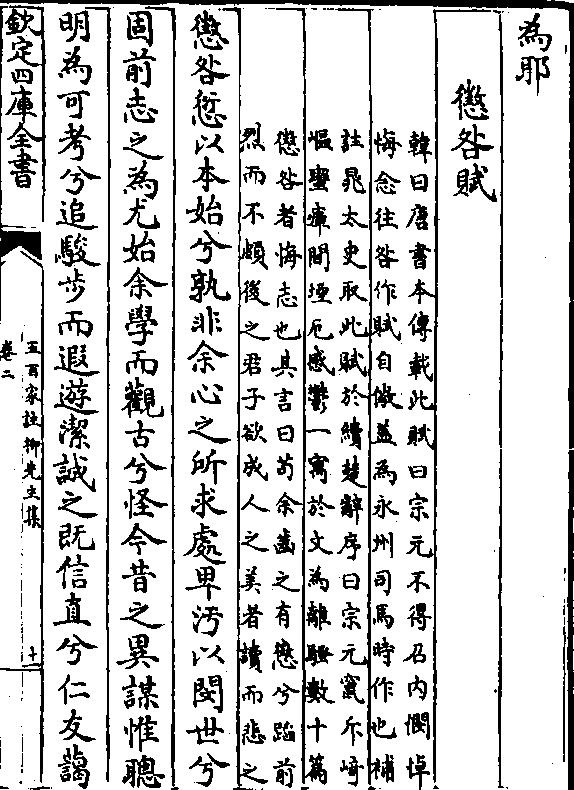 為耶
懲咎賦
韓曰唐書本傳載此賦曰宗元不得召内憫悼
悔念往咎作賦自儆蓋為永州司馬時作也補
註晁太史取此賦於續楚辭序曰宗元竄斥崎
嶇蠻瘴間堙厄感鬱一寓於文為離騷數十篇
懲咎者悔志也其言曰苟余齒之有懲兮蹈前
烈而不頗後之君子欲成人之美者讀而悲之
懲咎愆以本始兮孰非余心之所求處卑汚以閔世兮
固前志之為尤始余學而觀古兮怪今昔之異謀惟聰
明為可考兮追駿步而遐遊潔誠之既信直兮仁友藹
欽定四庫全書
五百家註柳先生集
卷二
十